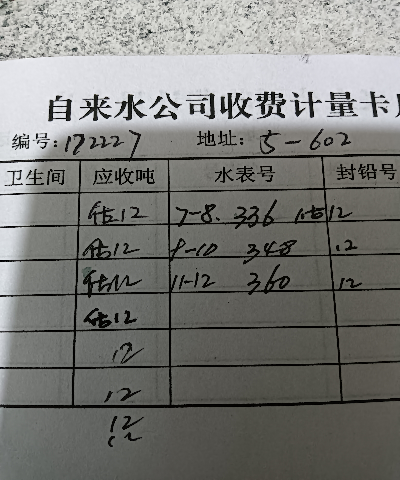 自来水公司收费计量卡
编号:172227 地址:5-602
卫生间 应收吨 水表号 封铅号
估12 7-8. 336 估12
估12 9-10 348 12
估12 11-12 360 12
估12
12
12
12
12